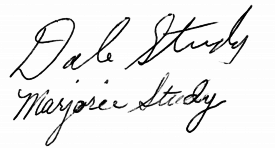 Dale Study
Marjorie Study